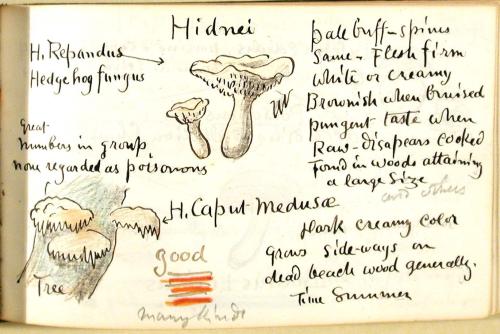 Hidnei
H. Repandus
Hedgehog fungus
pale buff-spines
Same - Flesh firm
white or creamy
Brownish when bruised
pungent taste when
Raw-disapears cooked
Found in woods attaining
a large size
and others
Great
numbers in group
none regarded as poisonous
H. Caput Medusæ
Dark creamy color
Grows side-ways on
dead beach wood generally.
Time Summer
Tree
good
many kinds